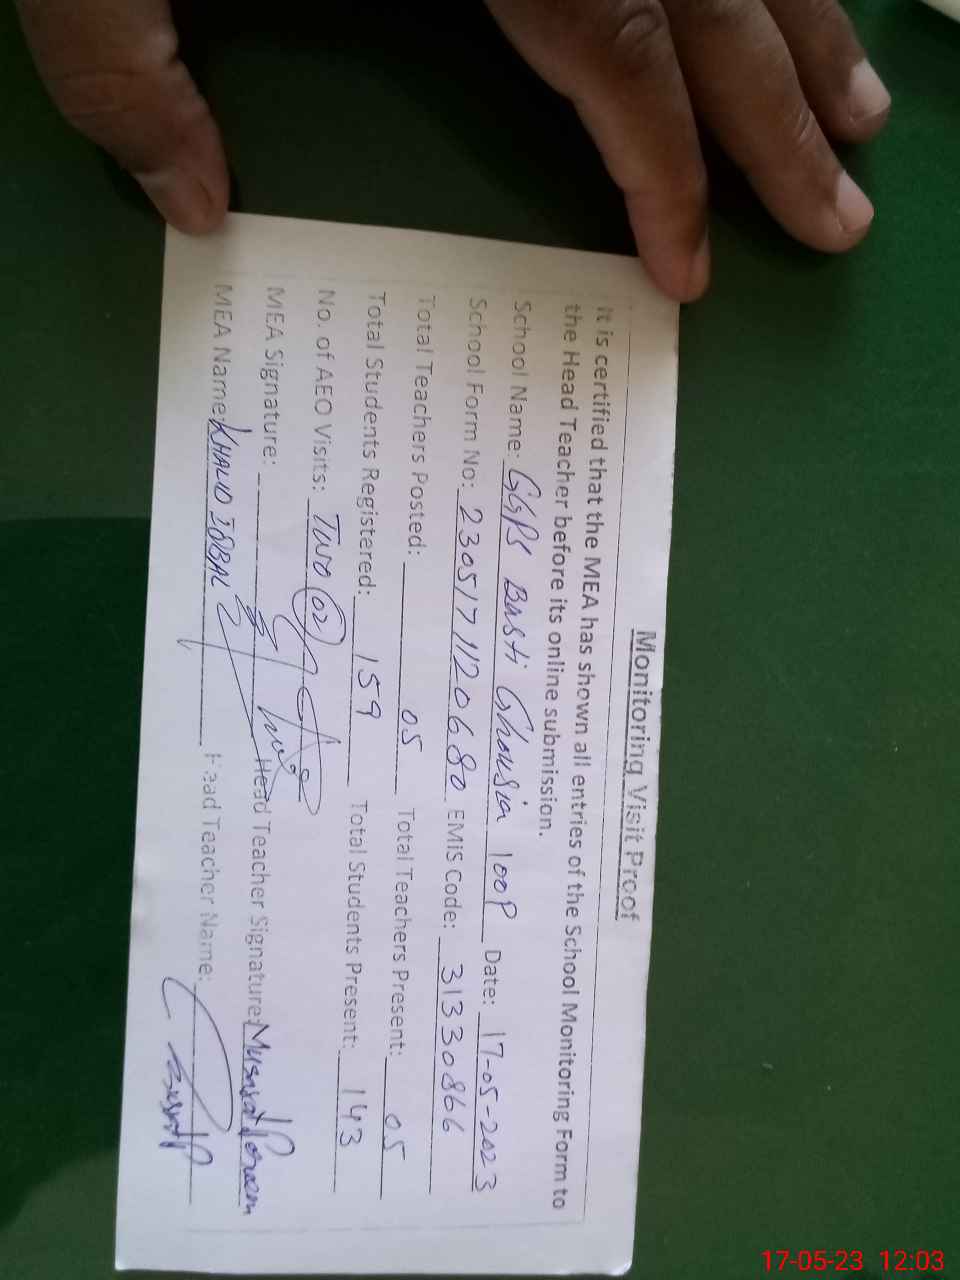 Monitoring Visit Proof
It is certified that the MEA has shown all entries of the School Monitoring Form to
the Head Teacher before its online submission.
School Name: GGPS Basti Ghousia 100P Date: 17-05-2023
School Form No: 2305171120680 EMIS Code: 31330866
Total Teachers Posted: 05 Total Teachers Present: 05
Total Students Registered: 159 Total Students Present: 143
No. of AEO Visits: Two (02)
MEA Signature: Head Teacher Signature: Musarat Parveen
MEA Name: KHALID IQBAL Head Teacher Name:
17-05-23 12:03